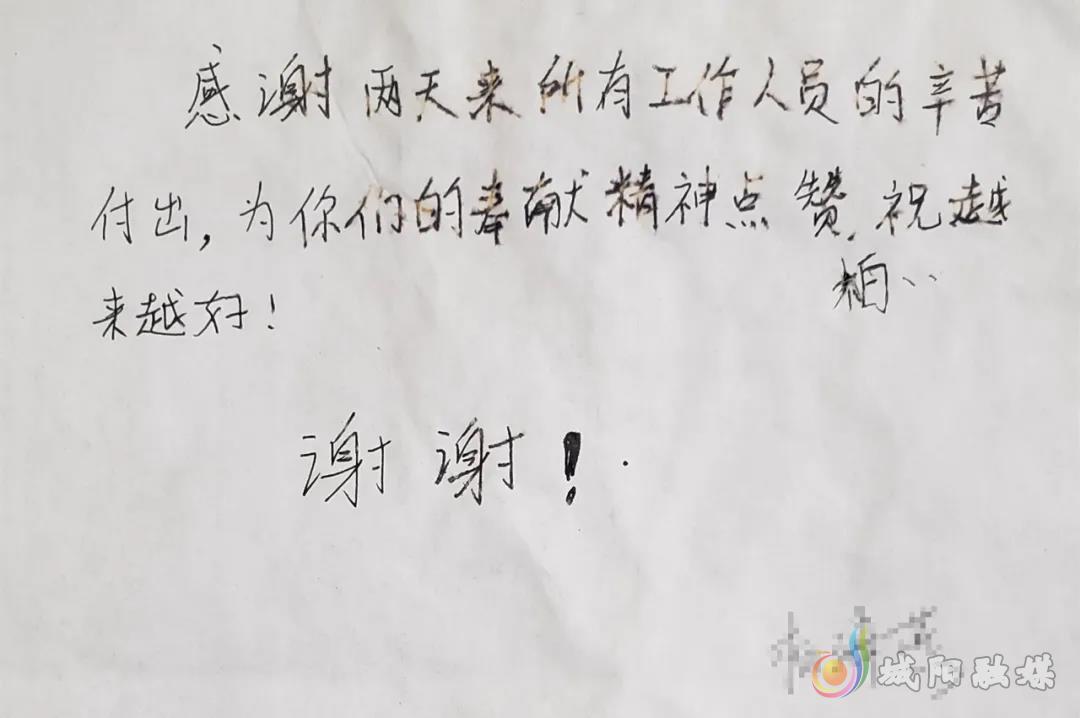 感谢两天来所有工作人员的辛苦
付出,为你们的奉献精神点赞,祝越
来越好!
谢谢!
城阳融媒